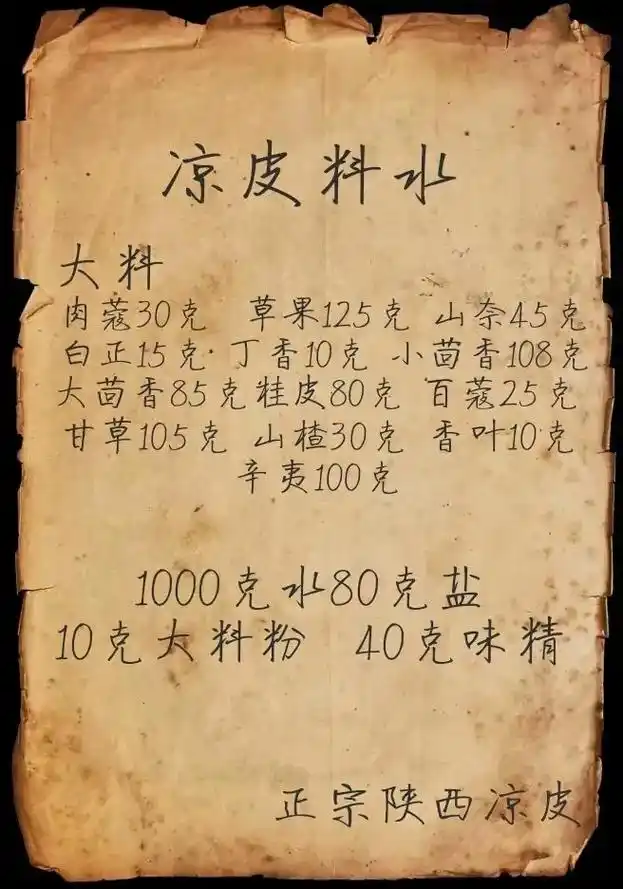 凉皮料水
大料
肉蔻30克 草果125克 山奈45克
白正15克 丁香10克 小茴香108克
大茴香85克桂皮80克 百蔻25克
甘草105克 山楂30克 香叶10克
辛夷100克
1000克水80克盐
10克大料粉 40克味精
正宗陕西凉皮